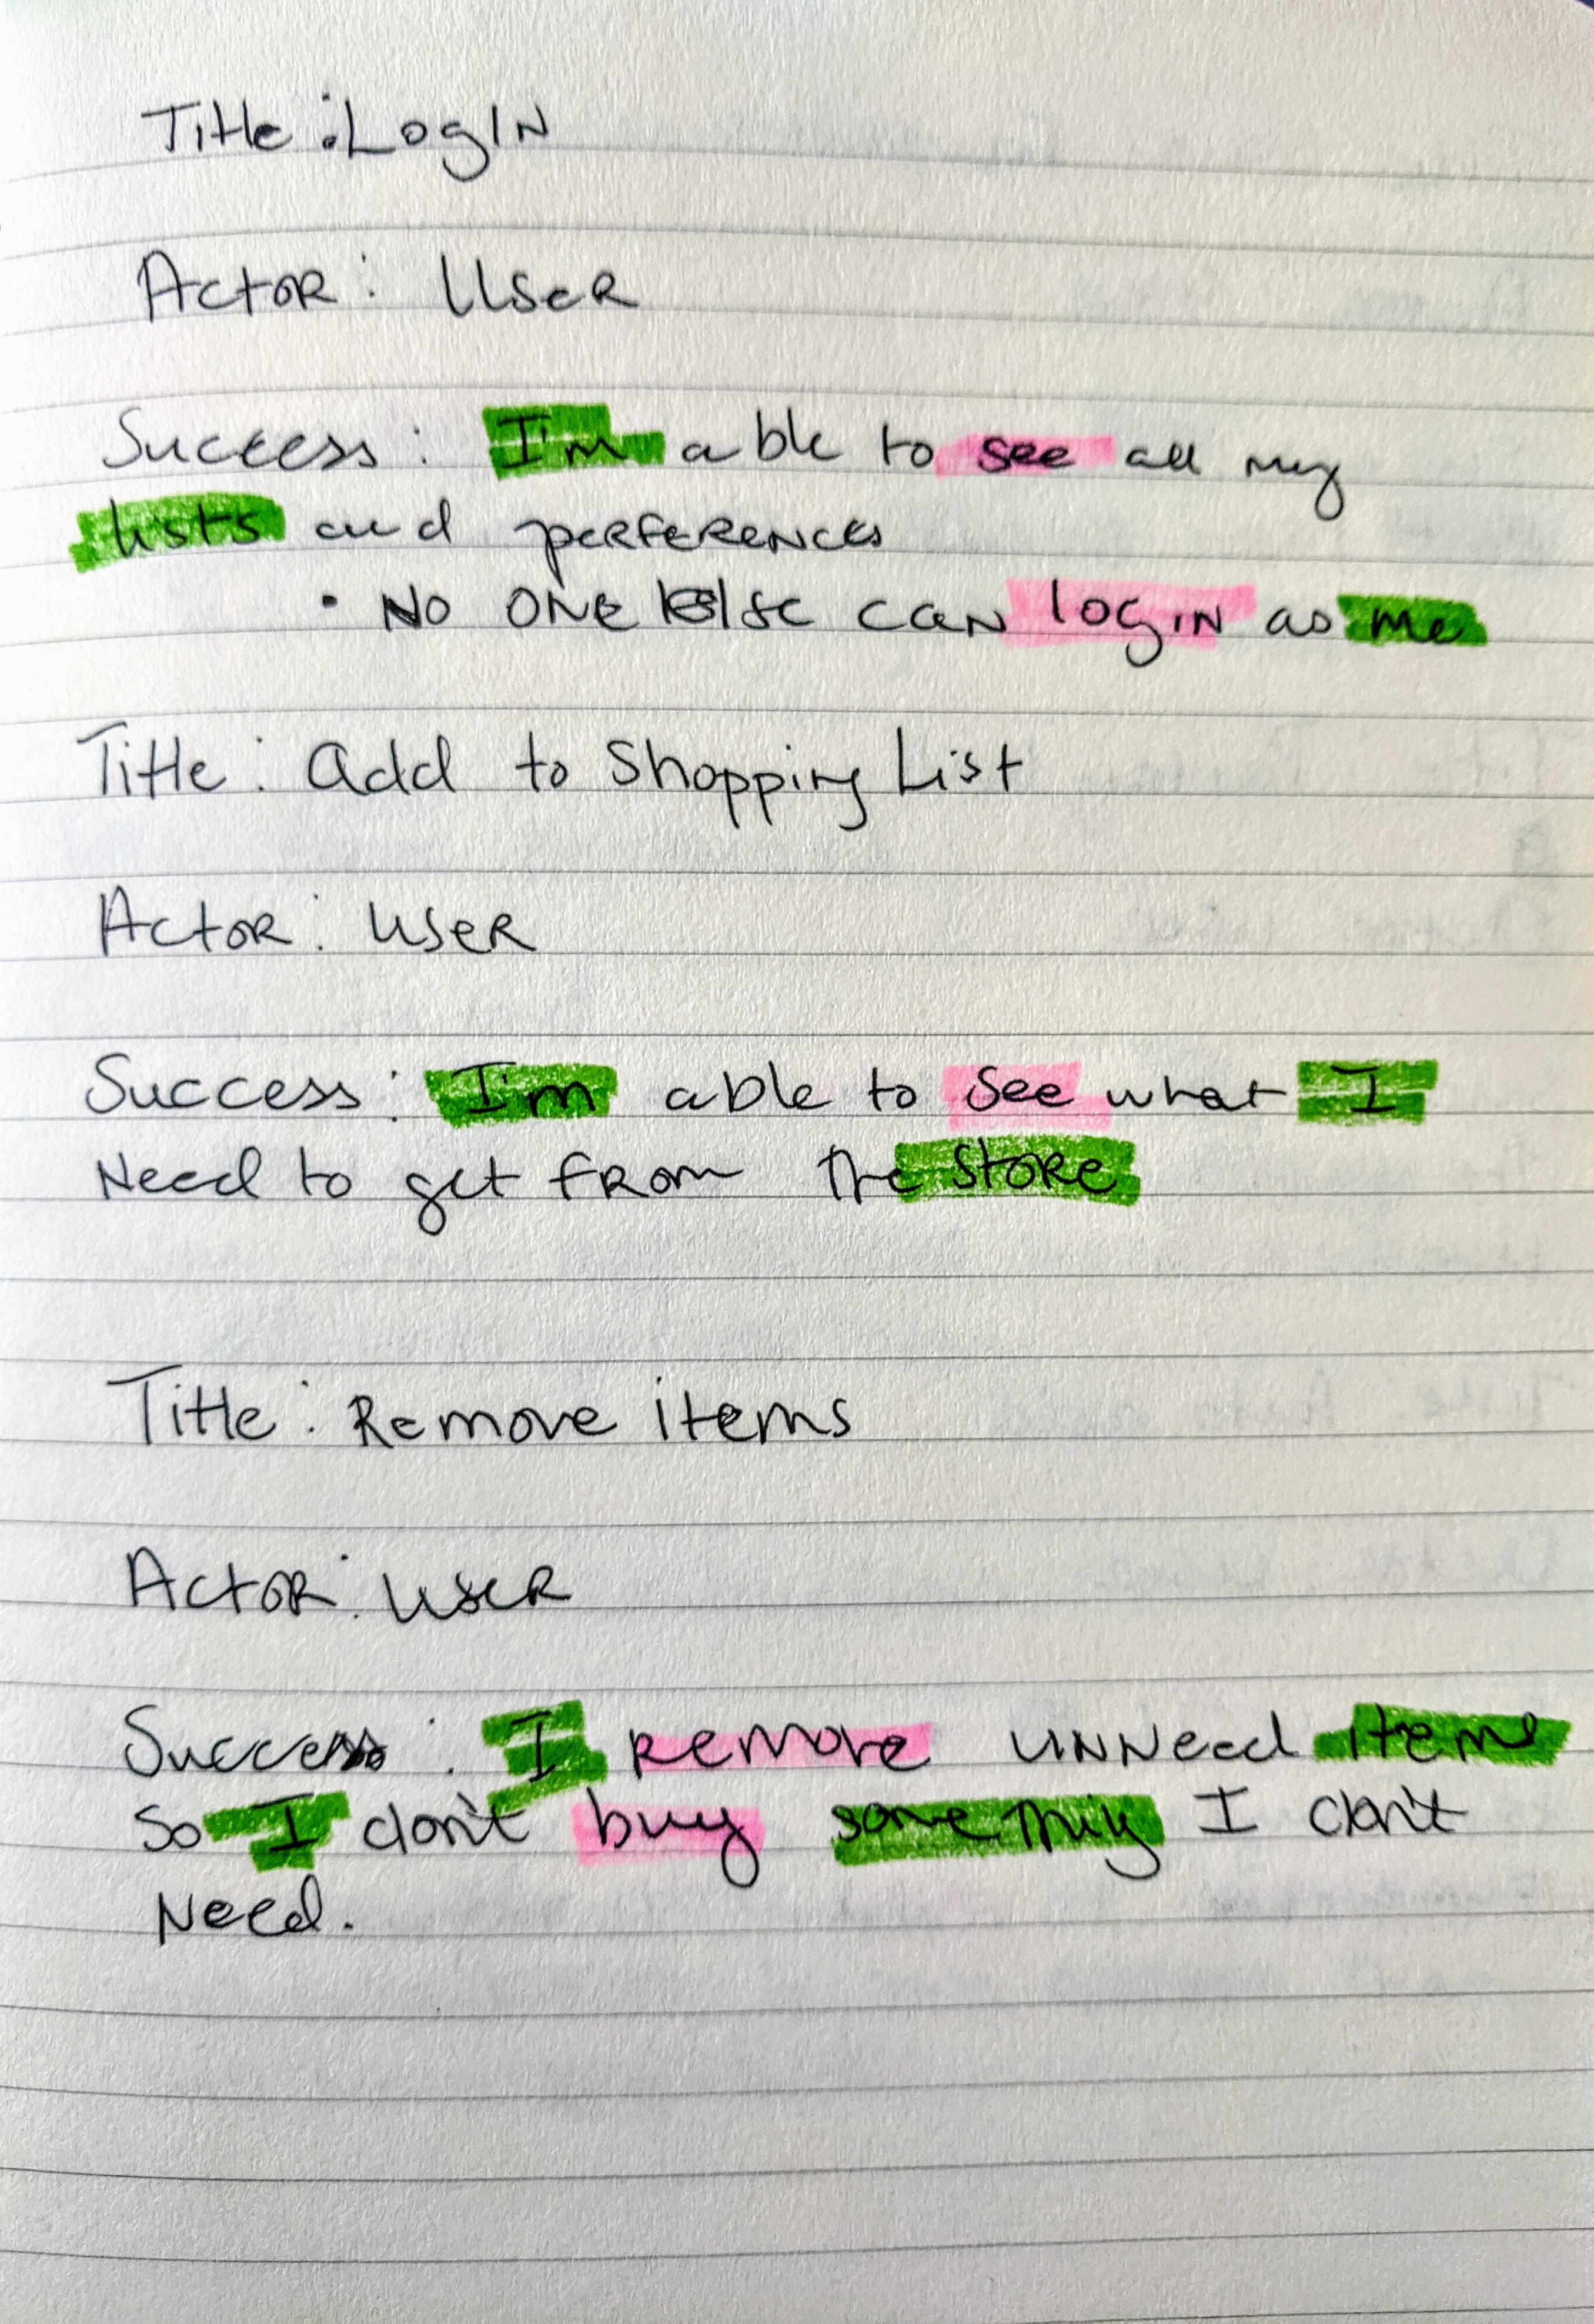 Title: LogIN
Actor: User
Success: I'm able to see all my
lists and perferences
• No one Else can login as me
Title: Add to Shopping List
Actor: User
Success: I'm able to see what I
Need to get from the store
Title: Remove items
Actor: User
Success: I remove unneed items
So I don't buy something I don't
Need.